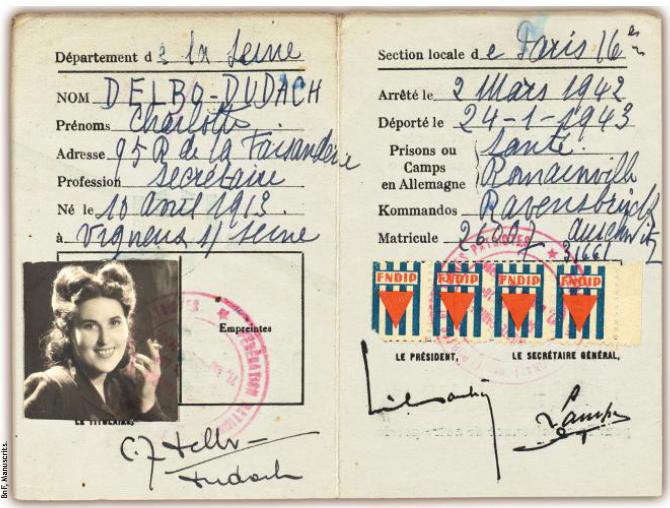 Département de la Seine
NOM DELBO-DUDACH
Prénoms Charlotte
Adresse 95 R de la Faisanderie
Profession Secrétaire
Né le 10 avril 1913
à Vigneux s/ Seine
Empreintes
LE TITULAIRE,
C. Delbo-
Dudach
Section locale de Paris 16e
Arrêté le 2 Mars 1942
Déporté le 24-1-1943
Prisons ou Camps en Allemagne
Santé
Romainville
Kommandos Ravensbrück
Auschwitz
Matricule
31661
FNDIP FNDIP FNDIP FNDIP
LE PRÉSIDENT, LE SECRÉTAIRE GÉNÉRAL,
BnF, Manuscrits.